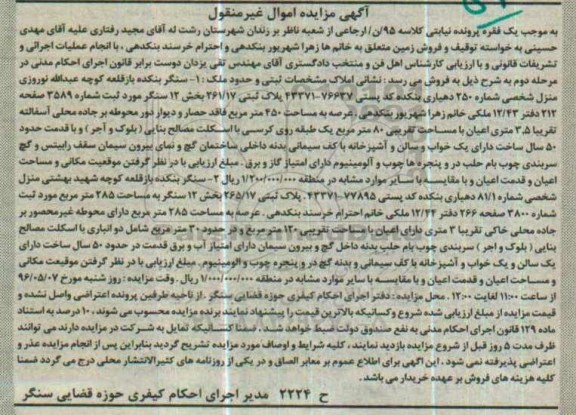 آگهی مزایده اموال غیرمنقول
به موجب یک فقره پرونده نیابتی کلاسه 95/ن/ ارجاعی از شعبه ناظر بر زندان شهرستان رشت له آقای مجید رفتاری علیه آقای مهدی
حسینی به خواسته توقیف و فروش زمین متعلق به خانم ها زهرا شهریور بنکدهی و احترام خرسند بنکدهی ، با انجام عملیات اجرائی و
تشریفات قانونی و با ارزیابی کارشناس اهل فن و منتخب دادگستری آقای مهندس تقی یزدان دوست برابر قانون اجرای احکام مدنی در
مرحله دوم به شرح ذیل به فروش می رسد : نشانی املاک مشخصات ثبتی و حدود ملک : 1- سنگر بنکده بازقلعه کوچه عبدالله نوروزی
منزل شخصی شماره 250 دهیاری بنکده کد پستی 76637-43371 پلاک ثبتی 261/17 بخش 12 سنگر مورد ثبت شماره 3589 صفحه
212 دفتر 12/43 ملکی خانم زهرا شهریور بنکدهی ، عرصه به مساحت 450 متر مربع فاقد حصار و دیوار دور محوطه بر جاده محلی آسفالته
تقریبا 3.5 متری اعیان با مساحت تقریبی 80 متر مربع یک طبقه روی کرسی با اسکلت مصالح بنایی ( بلوک و آجر ) و با قدمت حدود
50 سال ساخت دارای یک خواب و سالن و آشپزخانه با کف سیمانی بدنه داخلی ساختمان گچ و نمای بیرون سیمان سقف رابیتس و گچ
سربندی چوب بام حلب در و پنجره ها چوب و آلومینیوم دارای امتیاز گاز و برق . مبلغ ارزیابی با در نظر گرفتن موقعیت مکانی و مساحت
اعیان و قدمت اعیان و با مقایسه با سایر موارد مشابه در منطقه 1/200/000/000 ریال 2- سنگر بنکده بازقلعه کوچه شهید بهشتی منزل
شخصی شماره 81/1 دهیاری بنکده کد پستی 77895-43371 . پلاک ثبتی 265/17 بخش 12 سنگر به مساحت 285 متر مربع مورد ثبت
شماره 3800 صفحه 266 دفتر 12/44 ملکی خانم احترام خرسند بنکدهی . عرصه به مساحت 285 متر مربع دارای محوطه غیرمحصور بر
جاده محلی خاکی تقریبا 3 متری دارای اعیان با مساحت تقریبی 120 متر مربع و در حدود 20 متر مربع شامل دو انباری با اسکلت مصالح
بنایی ( بلوک و آجر ) سربندی چوب بام حلب بدنه داخل گچ و بیرون سیمان دارای امتیاز آب و برق قدمت در حدود 50 سال ساخت دارای
یک سالن و یک خواب و آشپزخانه با کف سیمانی و بدنه گچ در و پنجره چوب و آلومینیوم . مبلغ ارزیابی با در نظر گرفتن موقعیت مکانی
و مساحت اعیان و قدمت اعیان و با مقایسه با سایر موارد مشابه در منطقه 1/000/000/000 ریال . وقت مزایده : روز شنبه مورخ 96/05/07
از ساعت 11:00 لغایت 12:00 . محل مزایده : دفتر اجرای احکام کیفری حوزه قضایی سنگر . از ناحیه طرفین پرونده اعتراضی واصل نشده و
قیمت مزایده از مبلغ ارزیابی شده شروع و کسانیکه بالاترین قیمت را پیشنهاد نمایند برنده مزایده محسوب می شوند . 10 درصد به استناد
ماده 129 قانون اجرای احکام مدنی به نفع صندوق دولت ضبط خواهد شد . ضمنا کسانیکه تمایل به شرکت در مزایده دارند می توانند
ظرف مدت 5 روز قبل از شروع مزایده بازدید نمایند ، کلیه شرایط و اوصاف مورد مزایده تشریح گردید بنابراین پس از انجام مزایده عذر و
اعتراضی پذیرفته نمی شود . این آگهی برای اطلاع عموم بر معابر الصاق و در یکی از روزنامه های کثیرالانتشار محلی درج می گردد ضمنا
کلیه هزینه های فروش بر عهده خریدار می باشد .
ح 2224 مدیر اجرای احکام کیفری حوزه قضایی سنگر